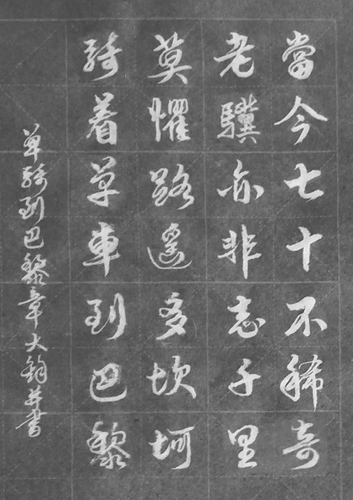 當今七十不稀奇
老驥亦非志千里
莫懼路遙多坎坷
騎着单車到巴黎
单騎到巴黎章大鈞并書